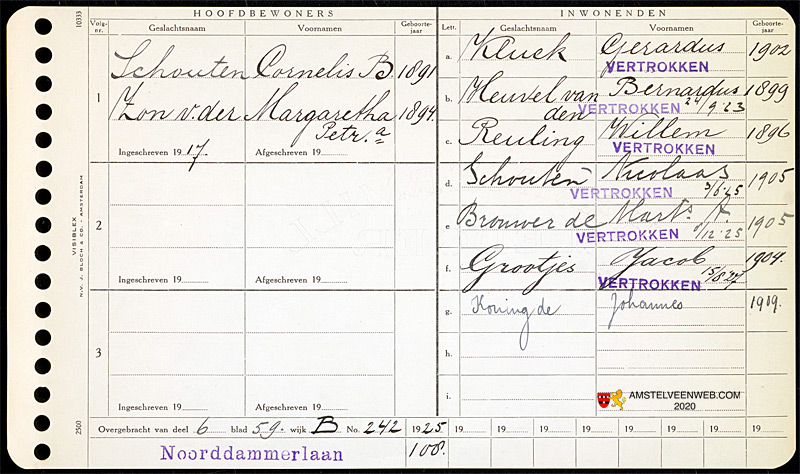 HOOFDBEWONERS INWONENDEN
10333
Volg-nr. Geslachtsnaam Voornamen Geboorte-jaar Lett. Geslachtsnaam Voornamen Geboorte-jaar
1 Schouten Cornelis B 1891
Zon v. der Margaretha 1894
Petr.a
Ingeschreven 1917. Afgeschreven 19
a. Kluck Gerardus 1902
VERTROKKEN
b. Heuvel van Bernardus 1899
den VERTROKKEN 24/9.23
c. Reuling Willem 1896
VERTROKKEN
d. Schouten Nicolaas 1905
VERTROKKEN 3/6.25
2
Ingeschreven 19 Afgeschreven 19
e. Brouwer de Marts A. 1905
VERTROKKEN /12.25
f. Grootjes Jacob 1904.
VERTROKKEN 15/8.27
3
Ingeschreven 19 Afgeschreven 19
g. Koning de Johannes 1909.
h.
i.
VISIBLEX
N/V. J. BLOCH & CO. - AMSTERDAM
2500
AMSTELVEENWEB.COM
2020
Overgebracht van deel 6 blad 59. wijk B No. 242 1925 19 19 19 19 19 19 19 19
Noorddammerlaan 108.